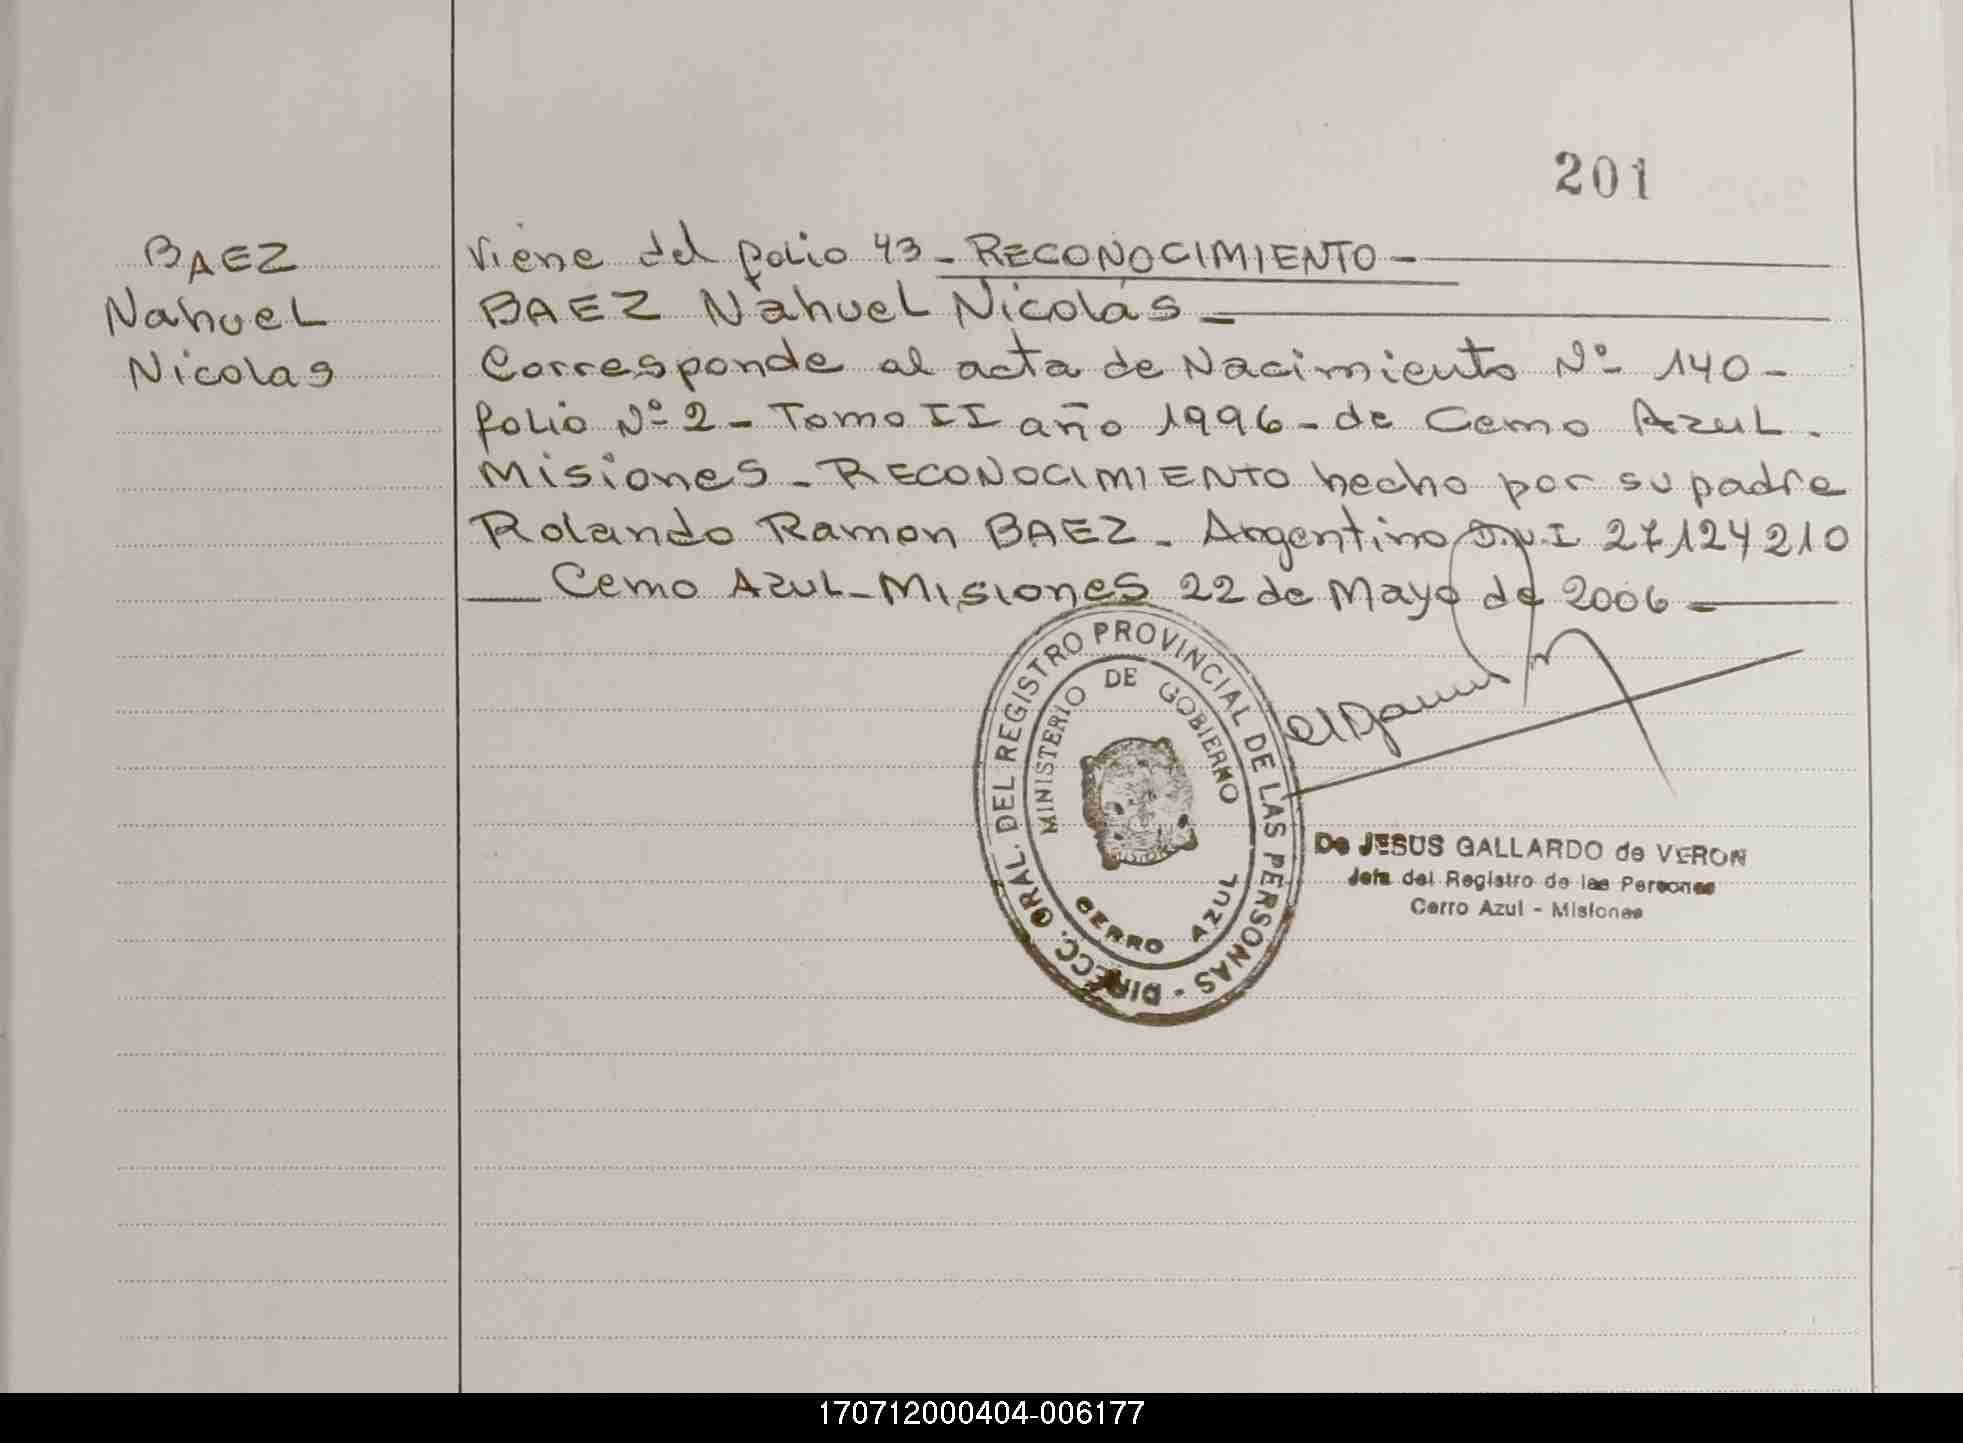 201
BAEZ
Nahuel
Nicolas
Viene del folio 43 - RECONOCIMIENTO -
BAEZ Nahuel Nicolás -
Corresponde al acta de Nacimiento Nº 140 -
folio Nº 2 - Tomo II año 1996 - de Cerro Azul -
Misiones - RECONOCIMIENTO hecho por su padre
Rolando Ramon BAEZ - Argentino D.N.I 27124210
Cerro Azul - Misiones 22 de Mayo de 2006 -
DIRECC. GRAL. DEL REGISTRO PROVINCIAL DE LAS PERSONAS -
MINISTERIO DE GOBIERNO
CERRO AZUL
De JESUS GALLARDO de VERON
Jefa del Registro de las Personas
Cerro Azul - Misiones
170712000404-006177